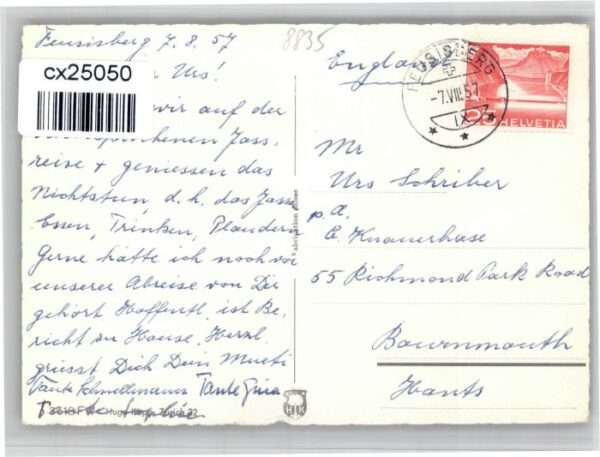 Feusisberg 7.8.57
8835
cx25050
Urs!
wir auf der
Jass,
reise + geniessen das
Nichtstun, d. h. das Jassen
Essen, Trinken, Plaudern
Gerne hätte ich noch vor
unserer Abreise von Dir
gehört Hoffentl. ist Be,
richt zu Hause, Herzl.
grüsst Dich Dein Mueti
Tante Tante Gina
England
FEUSISBERG
-7.VIII.57
IX
HELVETIA
Mr
Urs Schriber
p. A.
C. Knauerhase
55 Richmond Park Road
Bournmouth
Hants